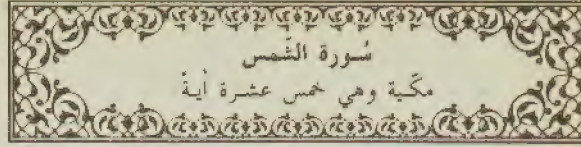 سُورة الشّمس
مكّية وهي خمس عشرة أيةً